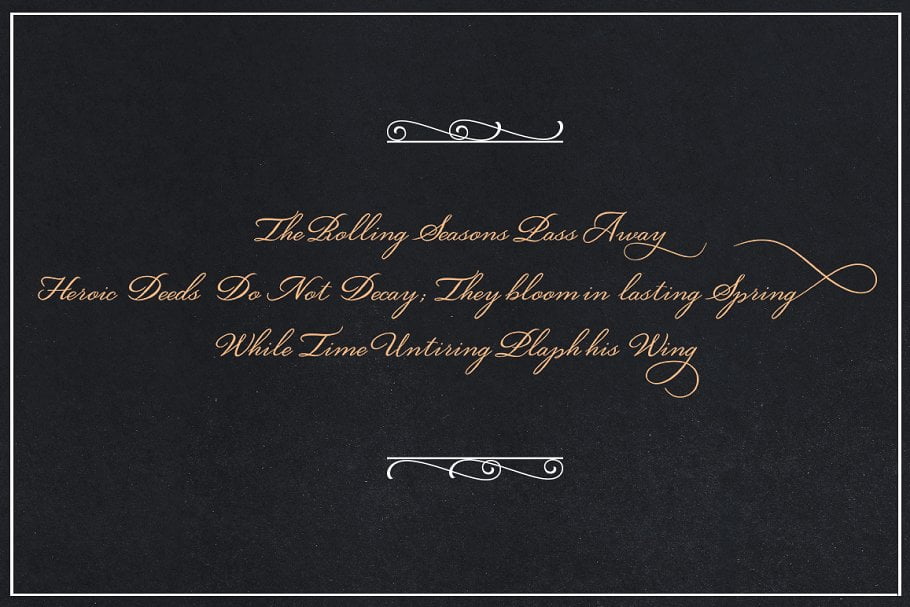 The Rolling Seasons Pass Away
Heroic Deeds Do Not Decay; They bloom in lasting Spring
While Time Untiring Plaph his Wing